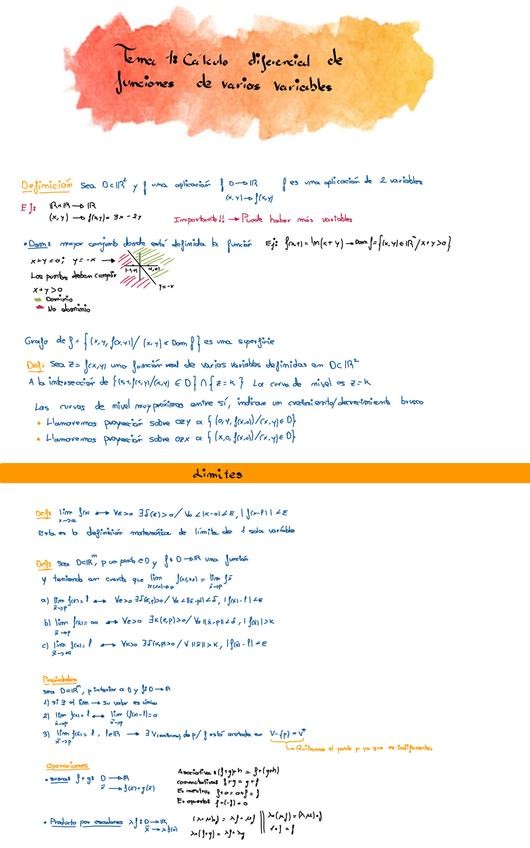 Tema 1: Cálculo diferencial de
funciones de varias variables
Definición Sea D⊂ℝ² y f una aplicación f D→ℝ f es una aplicación de 2 variables
(x,y)→f(x,y)
Ej: ℝxℝ→ℝ
(x,y)→f(x,y)= 3x-2y
Importante!! → Puede haber más variables
• Dom: mayor conjunto donde está definida la función Ej: f(x,y)=ln(x+y)→Dom f={(x,y)∈ℝ²/x+y>0}
x+y=0; y=-x →
Los puntos deben cumplir
x+y>0
y=-x
Dominio
No dominio
Grafo de f = {(x,y,f(x,y))/(x,y)∈Dom f} es una superficie
Def: Sea z=f(x,y) una función real de varias variables definidas en D⊂ℝ²
A la intersección de {(x,y,f(x,y)/(x,y)∈D}∩{z=k} La curva de nivel es z=k
Las curvas de nivel muy próximas entre sí, indican un crecimiento/decrecimiento brusco
• Llamaremos proyección sobre ozy a {(0,y,f(x,y))/(x,y)∈D}
• Llamaremos proyección sobre ozx a {(x,0,f(x,y))/(x,y)∈D}
Límites
Def: lim f(x) ↔ ∀ε>0 ∃δ(ε)>0/
Esta es la definición matemática de límite de 1 sola variable
Def: Sea D⊂ℝᵐ, p un punto ∈D y f: D→ℝ una función
y teniendo en cuenta que lim
a) lim f(x)=l ↔ ∀ε>0
b) lim f(x)=∞ ↔ ∀ε>0
c) lim f(x)=l ↔ ∀k>0
Propiedades
Sea D⊂ℝᵐ, p interior a D y f: D→ℝ
1) Si ∃ el lim → su valor es único
2) lim f(x)=l ↔ lim (f(x)-l)=0
3) lim f(x)=l, l∈ℝ → ∃ V(entorno) de p/ f está acotada en V-{p}=V*
Quitamos el punto p ya que es indiferente
Operaciones
• suma: f+g: D→ℝ
x→f(x)+g(x)
Asociativa: (f+g)+h = f+(g+h)
conmutativa: f+g = g+f
E. neutro: f+0=0+f=f
E. opuesto: f+(-f)=0
• Producto por escalares λf: D→ℝ
x→λf(x)
(λ+μ)f = λf+μf
λ(f+g)=λf+λg
λ(μf)=(λμ)f
1·f=f